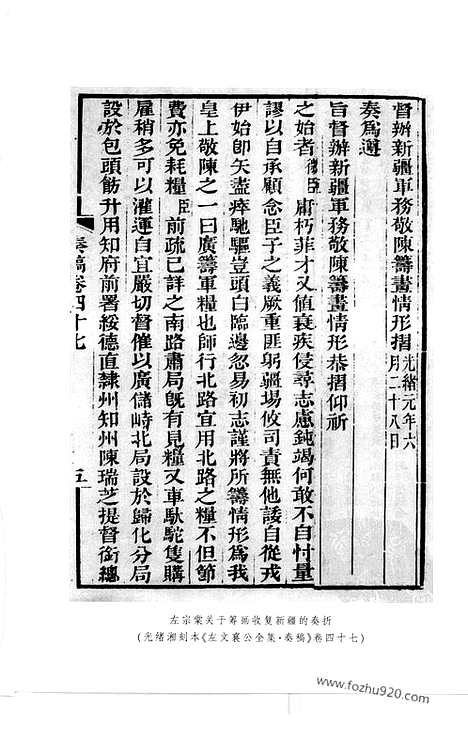 督辦新疆軍務敬陳籌畫情形摺 光緒元年六月二十八日
奏爲遵
旨督辦新疆軍務敬陳籌畫情形恭摺仰祈
之始者微臣庸朽菲才又値衰疾侵尋志慮鈍竭何敢不自忖量
謬以自承顧念臣子之義厥重匪躬疆場攸司責無他諉自從戎
伊始卽矢盡瘁馳驅豈頭白臨邊忽易初志謹將所籌情形爲我
皇上敬陳之一曰廣籌軍糧也師行北路宜用北路之糧不但節
費亦免耗糧臣前疏已詳之南路肅局既有見糧又車馱駝隻購
雇稍多可以灌運自宜嚴切督催以廣儲峙北局設於歸化分局
設於包頭飭升用知府前署綏德直隸州知州陳瑞芝提督銜總
奏稿卷四十七 五
左宗棠关于筹画收复新疆的奏折
(光绪湘刻本《左文襄公全集·奏稿》卷四十七)
www.fozhu920.com